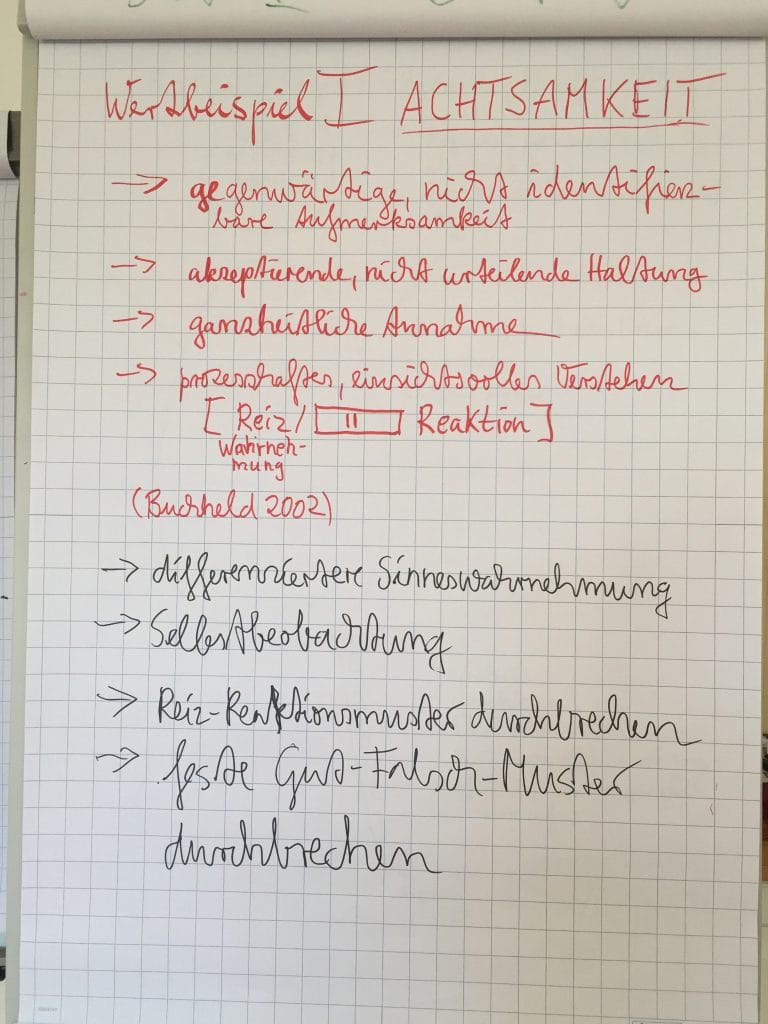 Wertbeispiel I ACHTSAMKEIT
→ gegenwärtige, nicht identifizier-
bare Aufmerksamkeit
→ akzeptierende, nicht urteilende Haltung
→ ganzheitliche Annahme
→ prozesshaftes, einsichtsvolles Verstehen
[Reiz/ [ II ] Reaktion]
Wahrneh-
mung
(Buchheld 2002)
→ differenziertere Sinneswahrnehmung
→ Selbstbeobachtung
→ Reiz-Reaktionsmuster durchbrechen
→ feste Gut-Falsch-Muster
durchbrechen